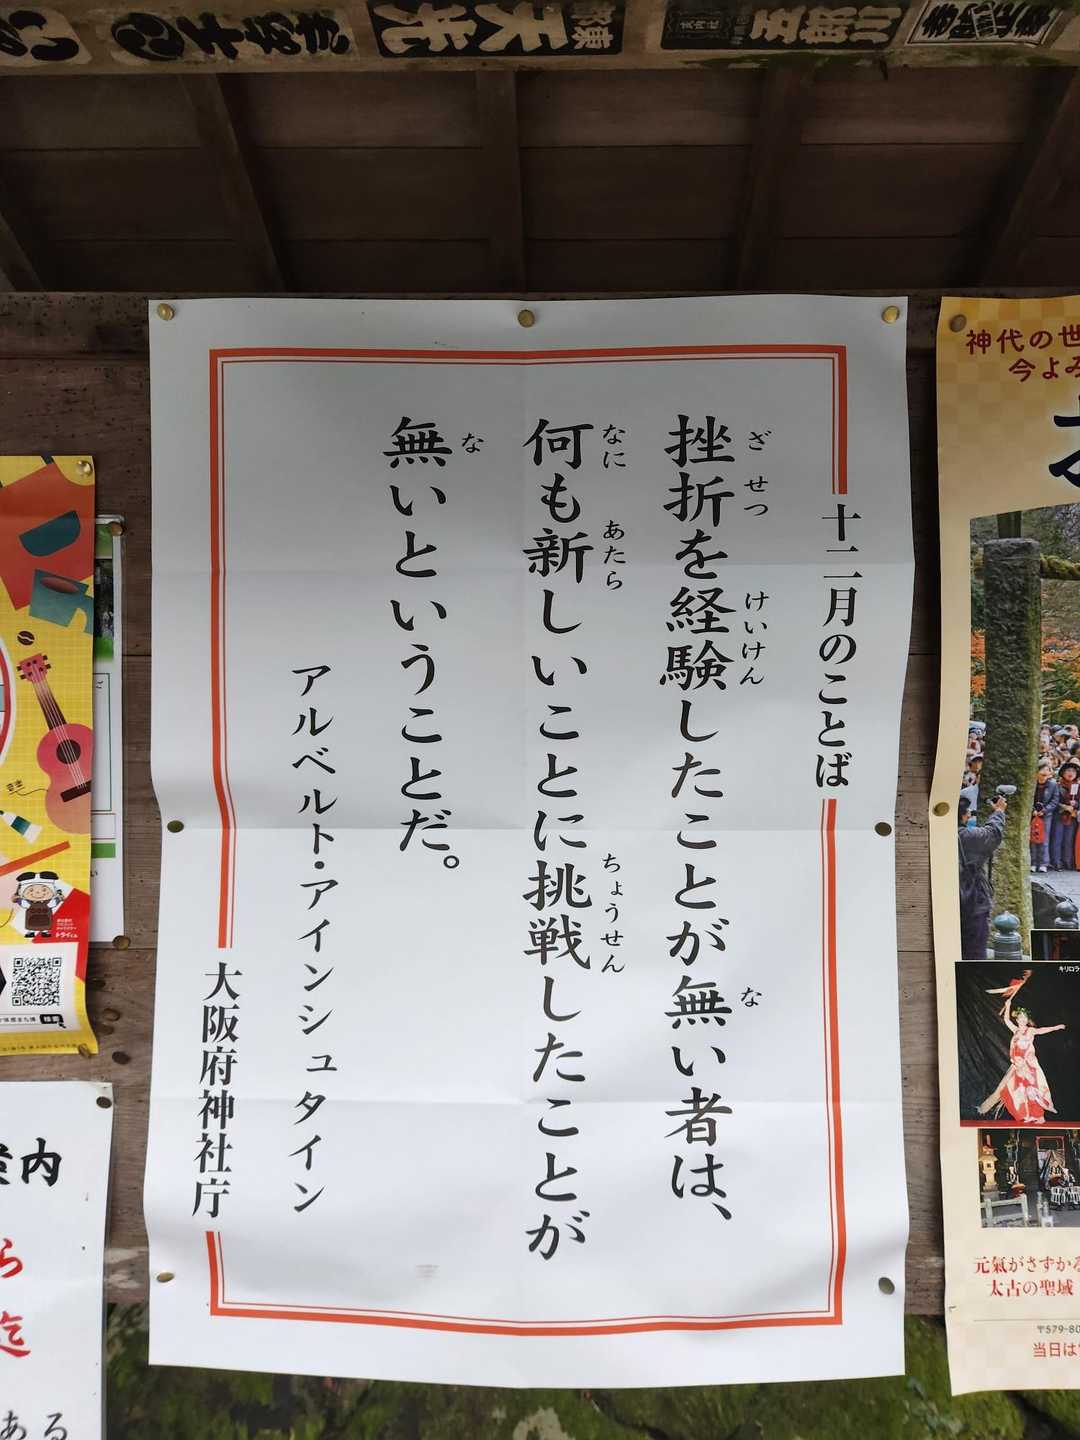 十二月のことば
挫折を経験したことが無い者は、
ざ せつ けいけん な
何も新しいことに挑戦したことが
なに あたら ちょうせん
無いということだ。
な
アルベルト・アインシュタイン
大阪府神社庁
神代の世
今よみ
キリロラ
元氣がさずかる
太古の聖域
〒579-80
当日は
案内
ら
迄
ある
天光
トライくん